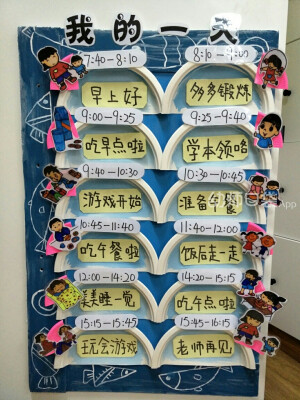 我的一天
7:40-8:10
早上好
8:10-9:00
多多锻炼
9:00-9:25
吃早点啦
9:25-9:40
学本领咯
9:40-10:30
游戏开始
10:30-10:45
准备午餐
10:45-11:40
吃午餐啦
11:40-12:00
饭后走一走
12:00-14:20
美美睡一觉
14:20-15:15
吃午点啦
15:15-15:45
玩会游戏
15:45-16:15
老师再见